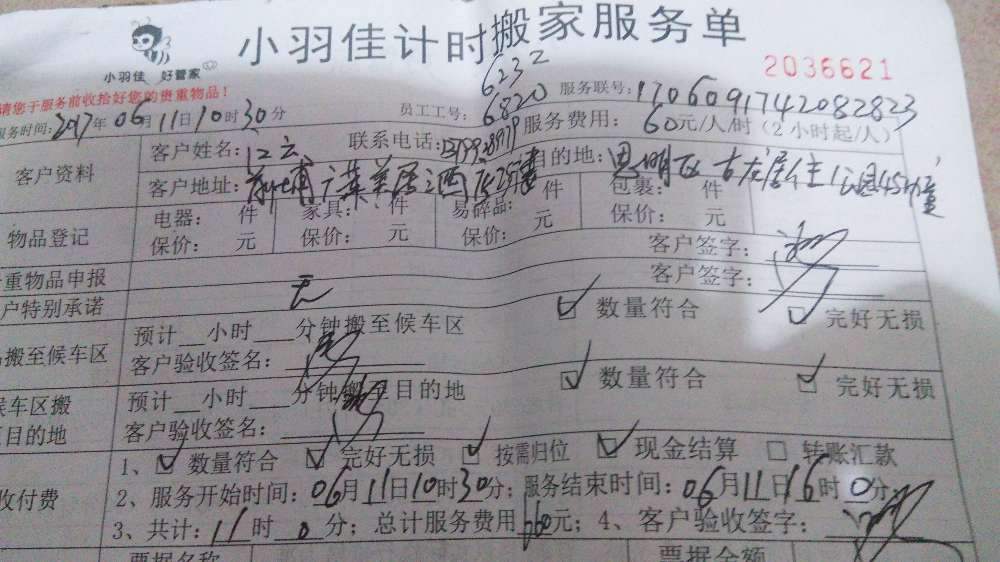 小羽佳计时搬家服务单
小羽佳 好管家
2036621
请您于服务前收拾好您的贵重物品！
服务时间：2017年06月11日10时30分
员工工号：6232
6820
服务联号：1706091742082823
客户资料
客户姓名：江云
联系电话：
服务费用：60元/人/时（2小时起/人）
客户地址：
目的地：思明区
物品登记
电器： 件 家具： 件 易碎品： 件 包裹： 件
保价： 元 保价： 元 保价： 元 保价： 元
客户签字：
重物品申报
客户签字：
户特别承诺 无
数量符合 完好无损
搬至候车区
预计__小时___分钟搬至候车区
客户验收签名：
数量符合 完好无损
候车区搬
目的地
预计__小时___分钟搬至目的地
客户验收签名：
收付费
1、数量符合 完好无损 按需归位 现金结算 转账汇款
2、服务开始时间：06月11日10时30分；服务结束时间：06月11日16时0分
3、共计：11时0分；总计服务费用660元；4、客户验收签字：
票据名称 票据金额